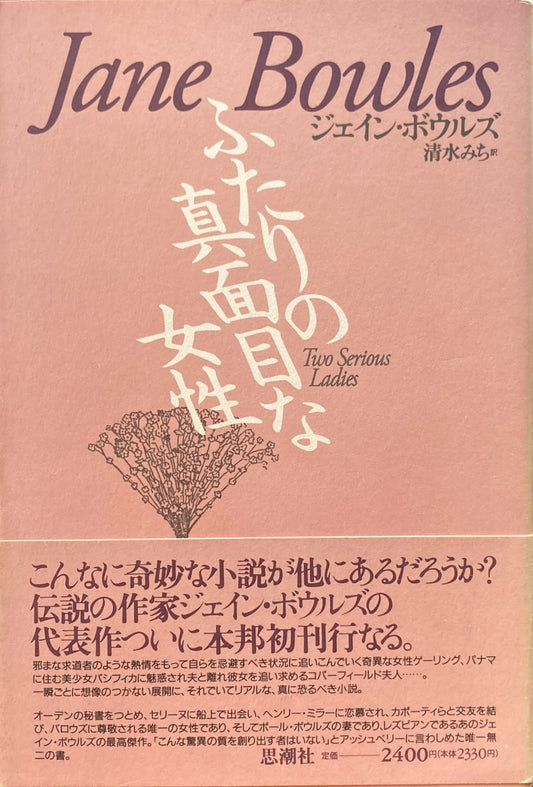 Jane Bowles
ジェイン・ボウルズ
清水みち訳
ふたりの
真面目な
女性
Two Serious
Ladies
こんなに奇妙な小説が他にあるだろうか?
伝説の作家ジェイン・ボウルズの
代表作ついに本邦初刊行なる。
邪まな求道者のような熱情をもって自らを忌避すべき状況に追いこんでいく奇異な女性ゲーリング、パナマ
に住む美少女パシフィカに魅惑され夫と離れ彼女を追い求めるコパーフィールド夫人……。
一瞬ごとに想像のつかない展開に、それでいてリアルな、真に恐るべき小説。
オーデンの秘書をつとめ、セリーヌに船上で出会い、ヘンリー・ミラーに恋慕され、カポーティらと交友を結
び、バロウズに尊敬される唯一の女性であり、そしてポール・ボウルズの妻であり、レズビアンであるあのジェ
イン・ボウルズの最高傑作。「こんな驚異の質を創り出す者はいない」とアッシュベリーに言わしめた唯一無
二の書。
思潮社 定価――2400円(本体2330円)